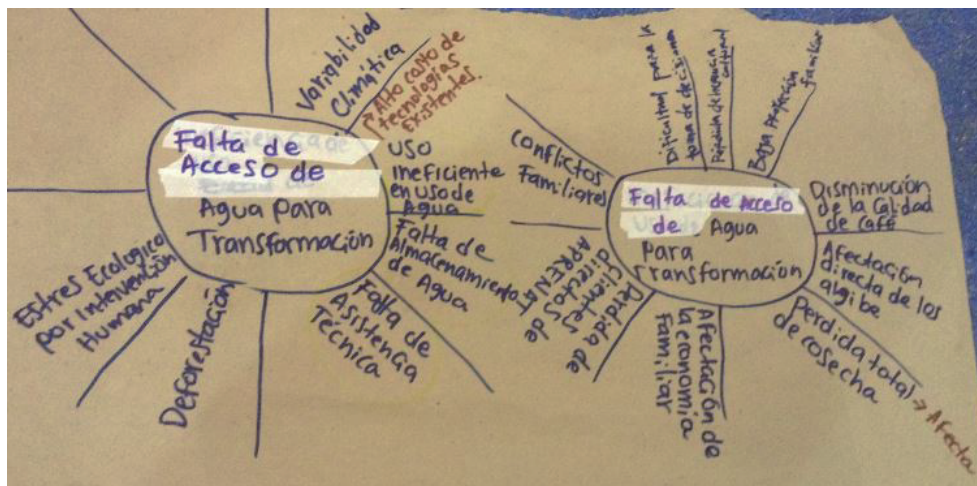 Variabilidad
Climática
→ Alto costo de
tecnologías
Existentes.
Falta de
Acceso de
Agua para
Transformación
USO
Ineficiente
en uso de
Agua
Falta de
Almacenamiento
de Agua
Falta de
Asistencia
Técnica
Deforestación
Estres Ecologico
por Intervención
Humana
Conflictos
Familiares
Dificultad para la
toma de decisiones
Pérdida de herencia
cultural
Baja protección
familiar
Falta de Acceso
de Agua
Para
Transformación
Disminución
de la Calidad
de café
Afectación
directa de los
algibe
Perdida total → Afecta
de cosecha
Afectación de
la economía
Familiar
Perdida de
Clientes
directos de